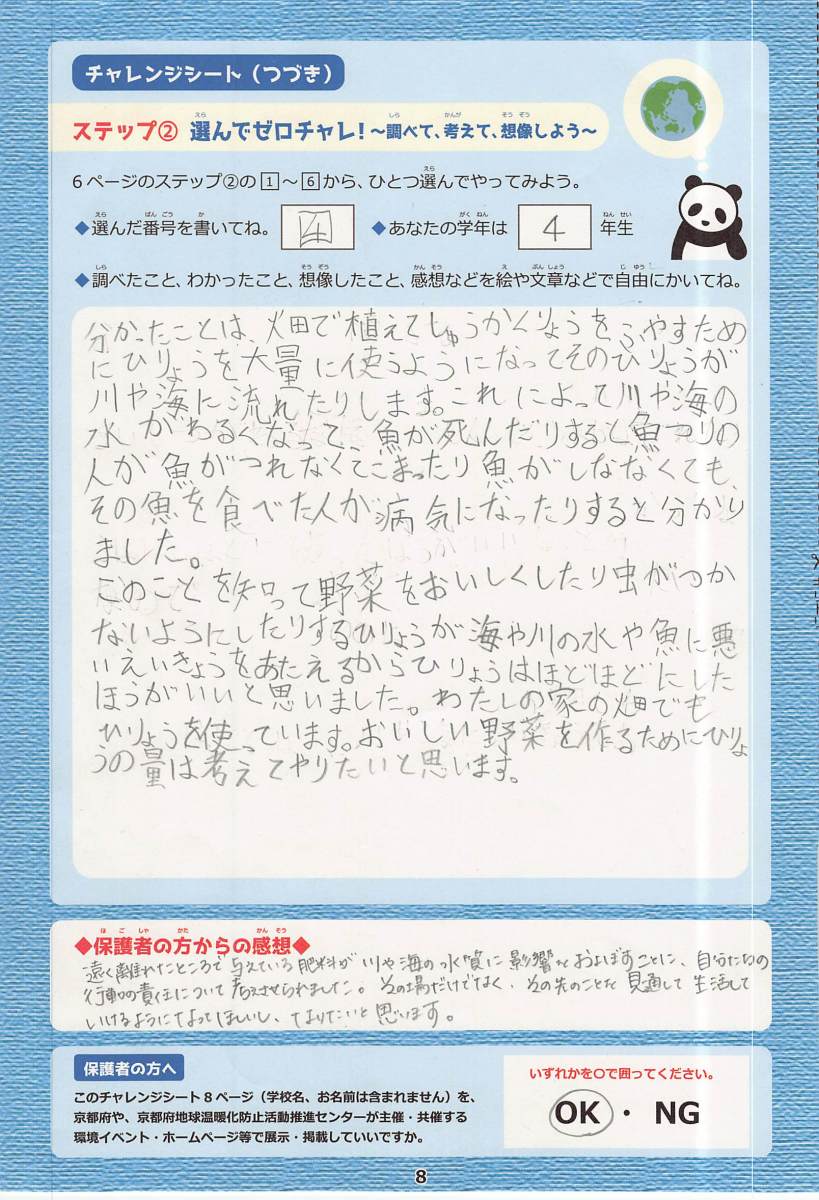 チャレンジシート（つづき）
ステップ② 選んでゼロチャレ！～調べて、考えて、想像しよう～
6ページのステップ②の1～6から、ひとつ選んでやってみよう。
◆選んだ番号を書いてね。 4 ◆あなたの学年は 4 年生
◆調べたこと、わかったこと、想像したこと、感想などを絵や文章などで自由にかいてね。
分かったことは、畑で植えてしゅうかくりょうをふやすため
にひりょうを大量に使うようになってそのひりょうが
川や海に流れたりします。これによって川や海の
水がわるくなって、魚が死んだりすると魚つりの
人が魚がつれなくてこまったり魚がしななくても、
その魚を食べた人が病気になったりすると分かり
ました。
このことを知って野菜をおいしくしたり虫がつか
ないようにしたりするひりょうが海や川の水や魚に悪
いえいきょうをあたえるからひりょうはほどほどにした
ほうがいいと思いました。わたしの家の畑でも
ひりょうを使っています。おいしい野菜を作るためにひりょ
うの量は考えてやりたいと思います。
◆保護者の方からの感想◆
遠く離れたところで与えている肥料が川や海の水質に影響をおよぼすことに、自分たちの
行動の責任について考えさせられました。その場だけでなく、その先のことを見通して生活して
いけるようになってほしいし、なりたいと思います。
保護者の方へ
このチャレンジシート8ページ（学校名、お名前は含まれません）を、
京都府や、京都府地球温暖化防止活動推進センターが主催・共催する
環境イベント・ホームページ等で展示・掲載していいですか。
いずれかを○で囲ってください。
OK・NG
8